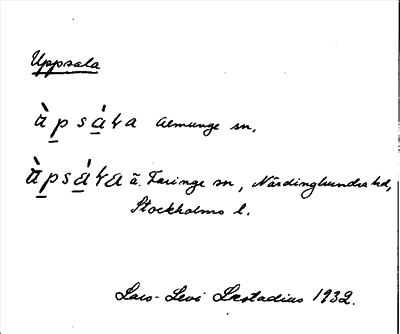 Uppsala
ὰp̲sá̲ɬa Almunge sn,
ὰ̲p̲sá̲ɬa ä. Faringe sn, Närdinghundra hd,
Stockholms l.
Lars-Levi Læstadius 1932.